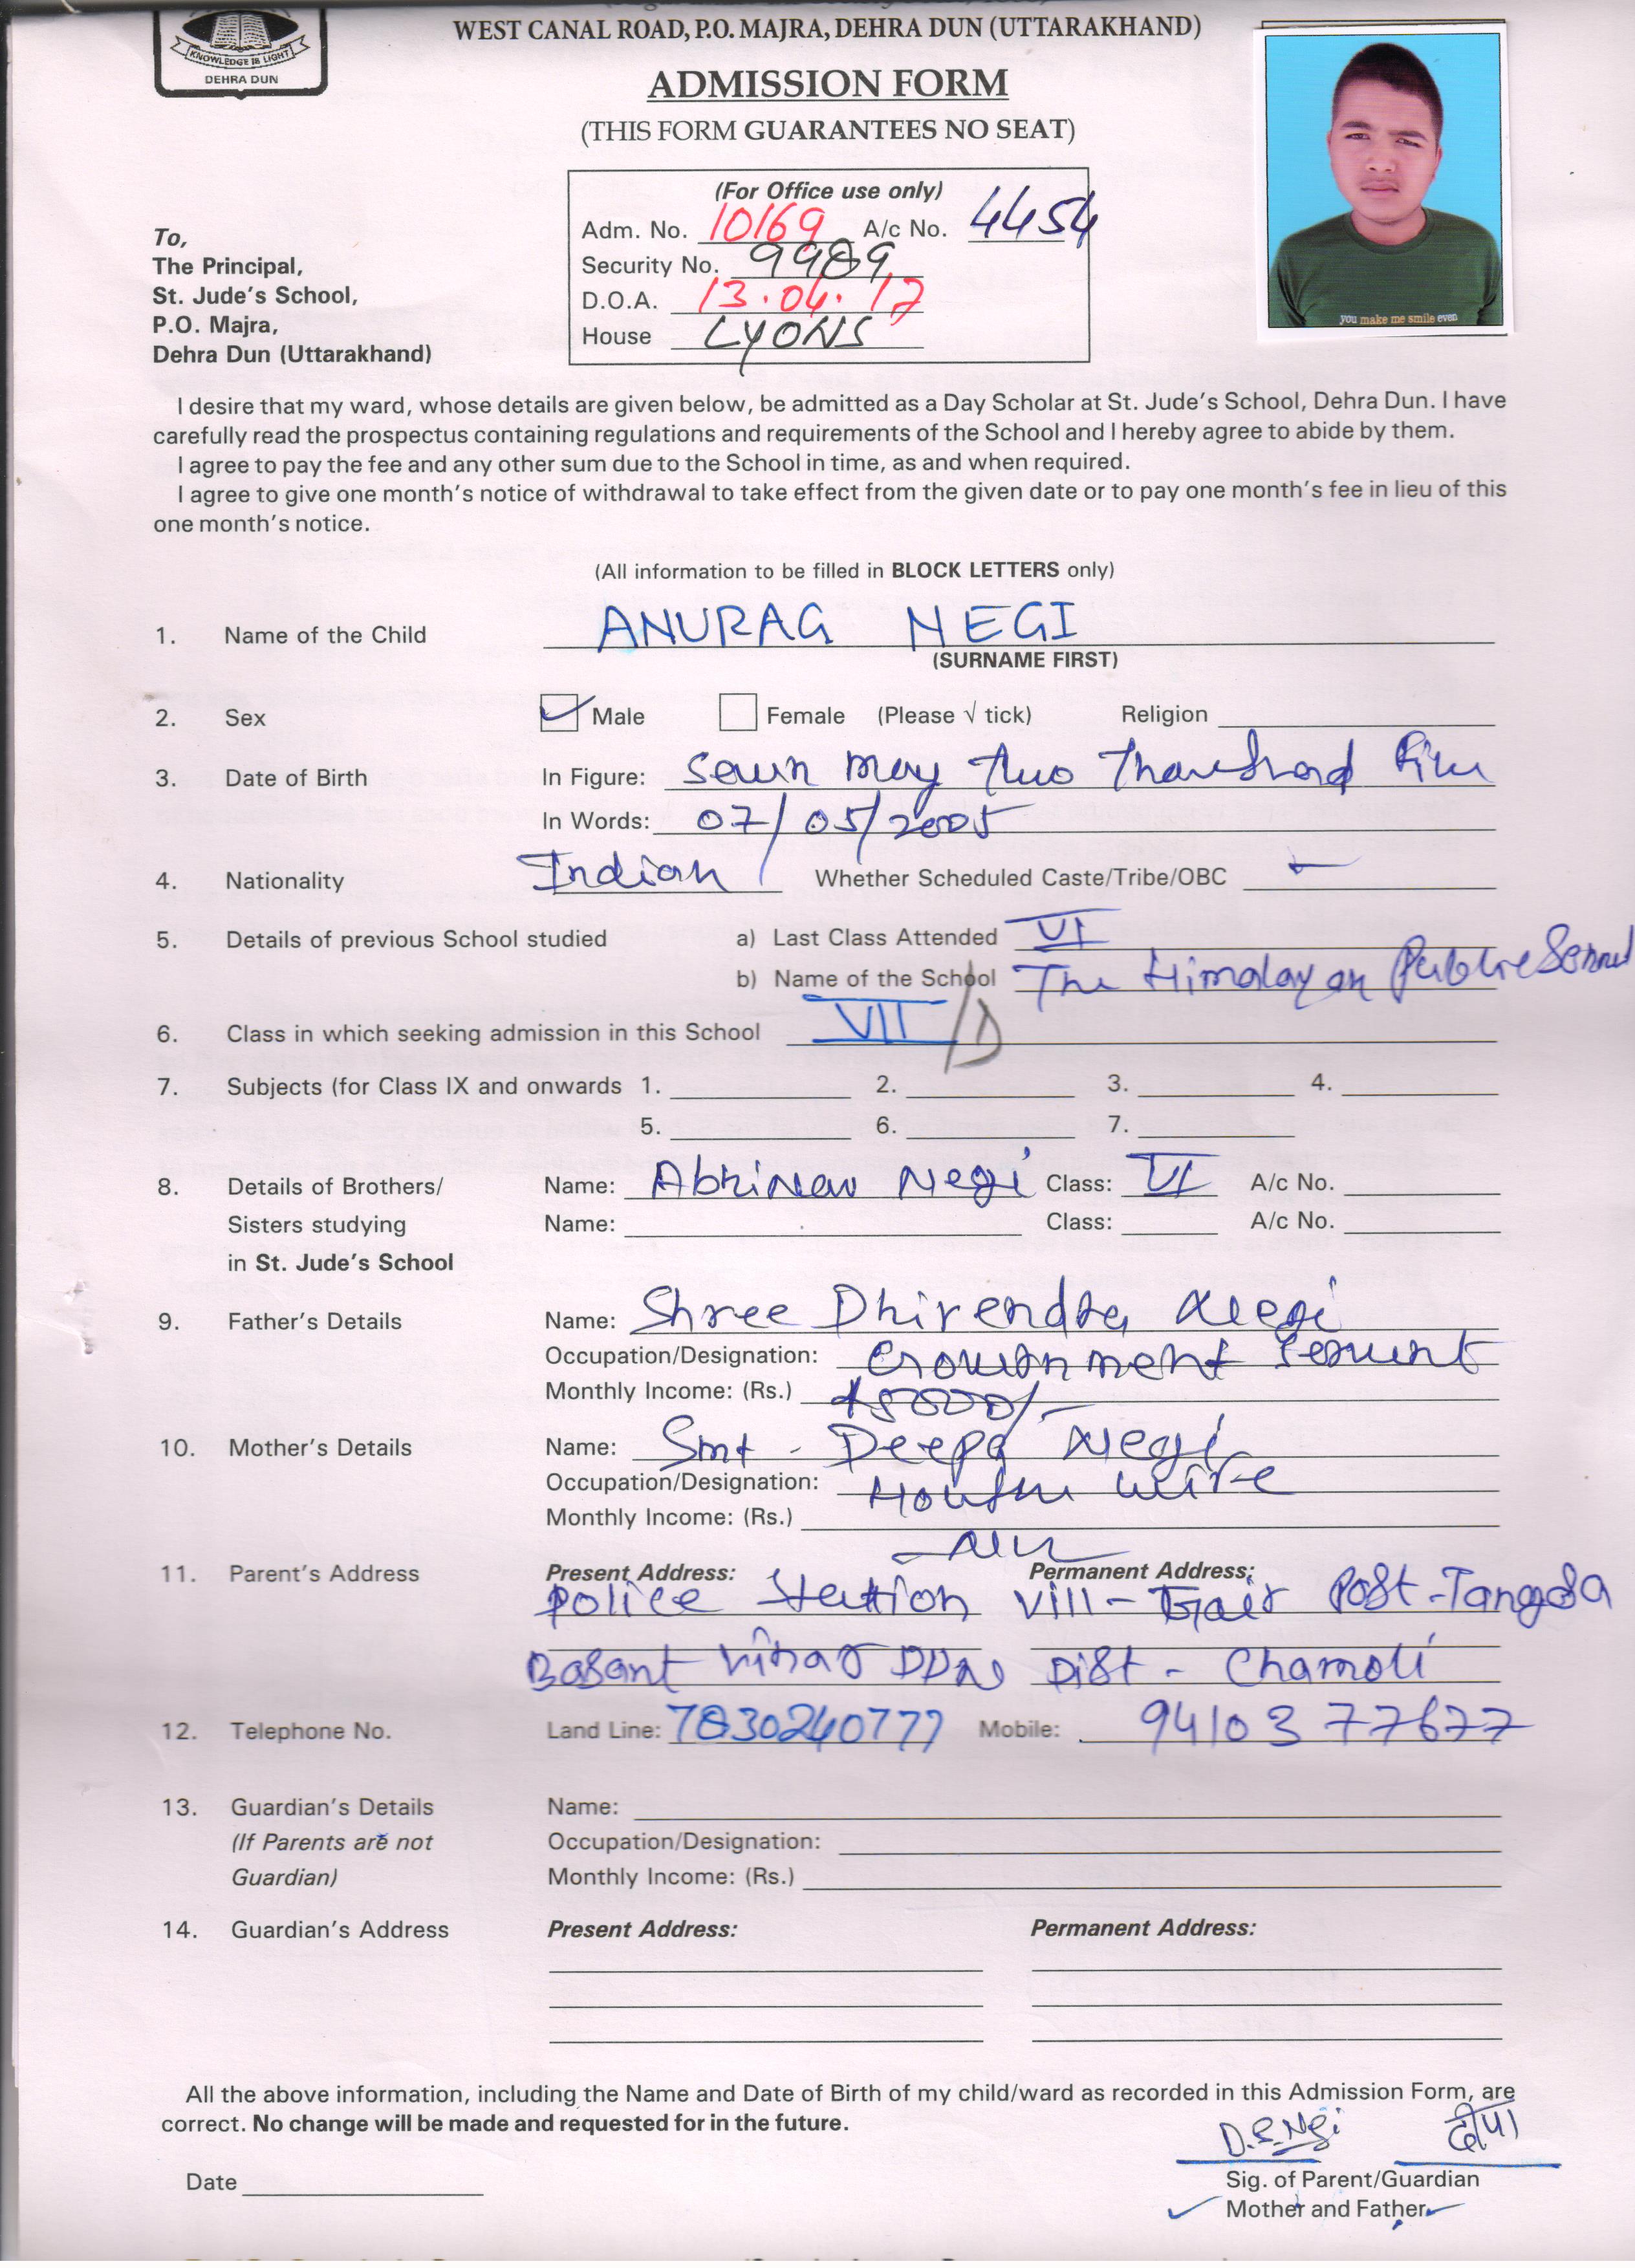 WEST CANAL ROAD, P.O. MAJRA, DEHRA DUN (UTTARAKHAND)
KNOWLEDGE IS LIGHT
DEHRA DUN
ADMISSION FORM
(THIS FORM GUARANTEES NO SEAT)
(For Office use only)
Adm. No. 10169 A/c No. 4454
Security No. 9989
D.O.A. 13.04.17
House LYONS
you make me smile even
To,
The Principal,
St. Jude's School,
P.O. Majra,
Dehra Dun (Uttarakhand)
I desire that my ward, whose details are given below, be admitted as a Day Scholar at St. Jude's School, Dehra Dun. I have
carefully read the prospectus containing regulations and requirements of the School and I hereby agree to abide by them.
I agree to pay the fee and any other sum due to the School in time, as and when required.
I agree to give one month's notice of withdrawal to take effect from the given date or to pay one month's fee in lieu of this
one month's notice.
(All information to be filled in BLOCK LETTERS only)
1. Name of the Child ANURAG NEGI
(SURNAME FIRST)
2. Sex Male Female (Please √ tick) Religion
3. Date of Birth In Figure: may two
In Words: 07/05/2005
4. Nationality Indian Whether Scheduled Caste/Tribe/OBC
5. Details of previous School studied a) Last Class Attended VI
b) Name of the School The Himalayan Public
6. Class in which seeking admission in this School VII/D
7. Subjects (for Class IX and onwards 1. 2. 3. 4.
5. 6. 7.
8. Details of Brothers/ Name: Abhinav Negi Class: VI A/c No.
Sisters studying Name: Class: A/c No.
in St. Jude's School
9. Father's Details Name: Shree Dhirendra Negi
Occupation/Designation:
Monthly Income: (Rs.)
10. Mother's Details Name: Smt - Deepa Negi
Occupation/Designation: wife
Monthly Income: (Rs.)
11. Parent's Address Present Address: Permanent Address:
Police Station Vill - Gair Post - Tangsa
Basant Vihar DDN Dist - Chamoli
12. Telephone No. Land Line: 7830240777 Mobile: 9410377677
13. Guardian's Details Name:
(If Parents are not Occupation/Designation:
Guardian) Monthly Income: (Rs.)
14. Guardian's Address Present Address: Permanent Address:
All the above information, including the Name and Date of Birth of my child/ward as recorded in this Admission Form, are
correct. No change will be made and requested for in the future.
D.S. Negi दीपा
Date Sig. of Parent/Guardian
Mother and Father